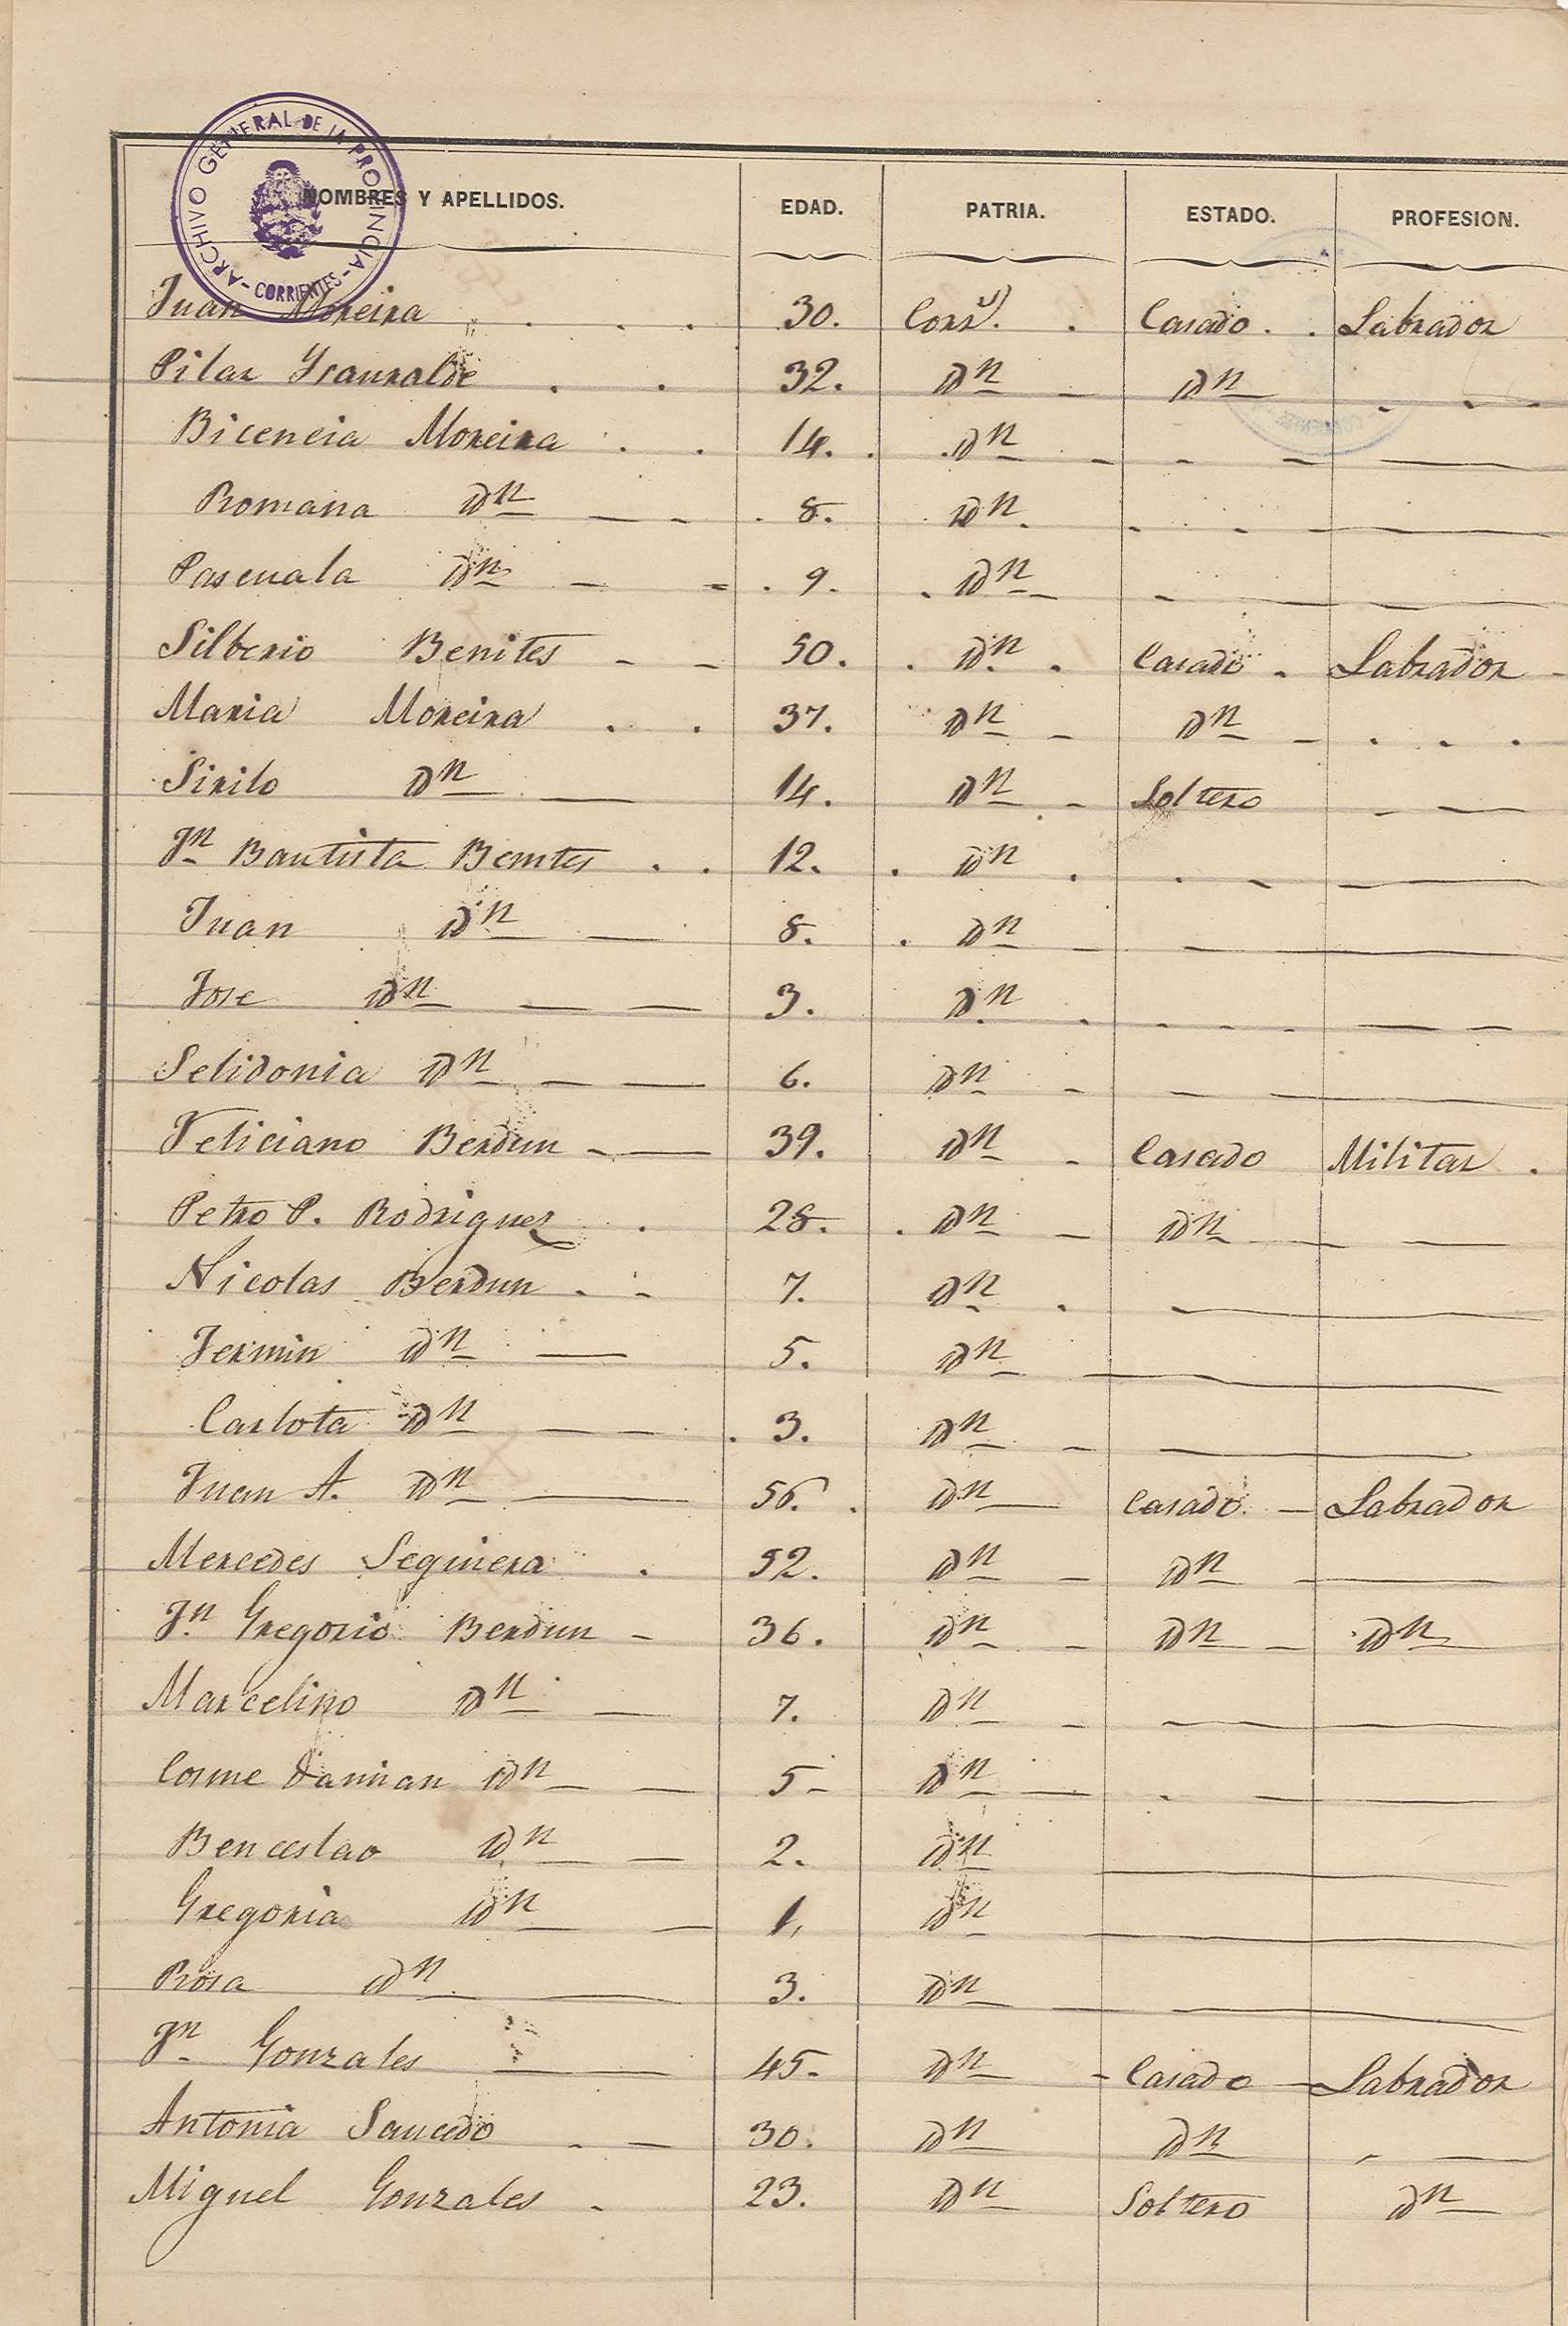 ARCHIVO GENERAL DE LA PROVINCIA - CORRIENTES -
NOMBRES Y APELLIDOS. EDAD. PATRIA. ESTADO. PROFESION.
Juan Moreira 30. Corr. Casado Labrador
Pilar Ysauralde 32. Dn Dn
Bicencia Moreira 14. Dn
Romana Dn 8. Dn
Pascuala Dn 9. Dn
Silberio Benites 50. Dn Casado Labrador
Maria Moreira 37. Dn Dn
Sirilo Dn 14. Dn Soltero
Jn Bautista Benites 12. Dn
Juan Dn 8. Dn
Jose Dn 3. Dn
Selidonia Dn 6. Dn
Feliciano Berdun 39. Dn Casado Militar
Petro P. Rodriguez 28. Dn Dn
Nicolas Berdun 7. Dn
Fermin Dn 5. Dn
Carlota Dn 3. Dn
Juan A. Dn 56. Dn Casado Labrador
Mercedes Seguiera 52. Dn Dn
Jn Gregorio Berdun 36. Dn Dn Dn
Marcelino Dn 7. Dn
Cosme Damian Dn 5 Dn
Benceslao Dn 2. Dn
Gregoria Dn 1, Dn
Rosa Dn 3. Dn
Jn Gonzales 45. Dn Casado Labrador
Antonia Saucedo 30. Dn Dn
Miguel Gonzales 23. Dn Soltero Dn